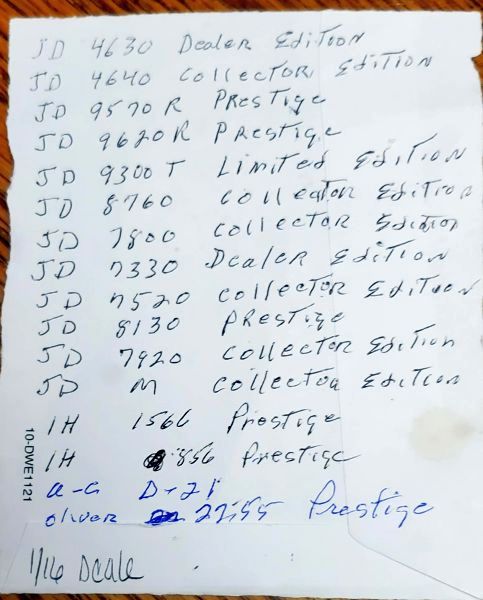 JD 4630 Dealer Edition
JD 4640 Collector Edition
JD 9570R Prestige
JD 9620R Prestige
JD 9300T Limited Edition
JD 8760 Collector Edition
JD 7800 Collector Edition
JD 7330 Dealer Edition
JD 7520 Collector Edition
JD 8130 Prestige
JD 7920 Collector Edition
JD M Collector Edition
IH 1566 Prestige
IH 856 Prestige
A-C D-21
Oliver 2255 Prestige
1/16 Scale
10-DWE1121